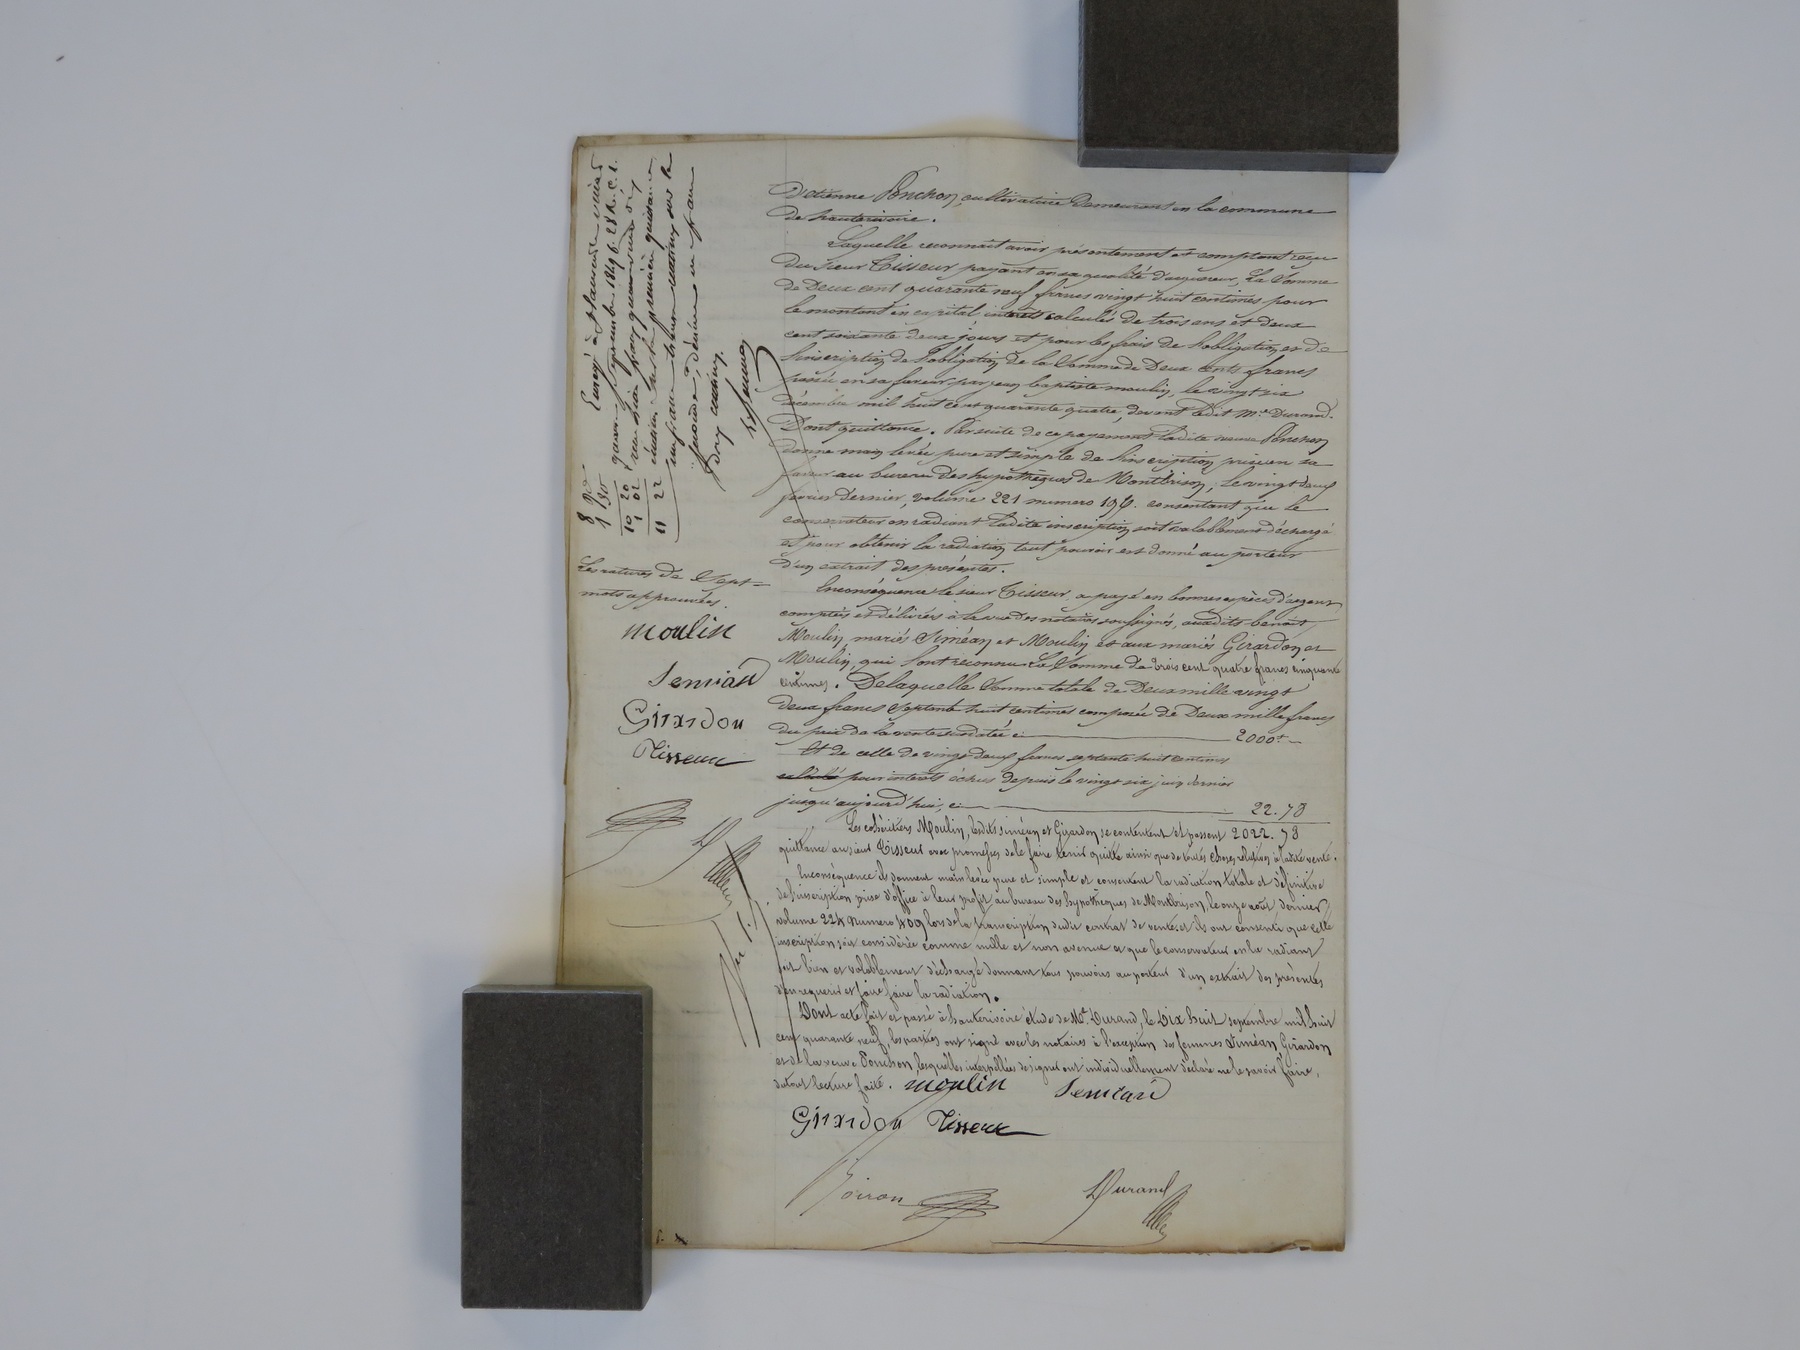 D'étienne Ponchon, cultivatrice demeurant en la commune
de hauterivoire.
Laquelle reconnait avoir présentement et comptant reçu
du sieur Tisseur payant en sa qualité d'acquéreur, La Somme
de Deux cent quarante neuf francs vingt huit centimes pour
le montant en capital intérêts calculés de trois ans et deux
cent soixante deux jours et pour les frais de l'obligation et de
l'inscription de l'obligation de la Somme de Deux cents francs
passée en sa faveur par jean baptiste moulin, le vingt six
décembre mil huit cent quarante quatre, devant ledit Me. Durand.
Dont quittance. Par suite de ce payement Ladite veuve Ponchon
donne main levée pure et simple de l'inscription prise en sa
faveur au bureau des hypothèques de Montbrison, le vingt deux
février dernier, volume 221 numero 196. consentant que le
conservateur en radiant Ladite inscription soit valablement déchargé
et pour obtenir la radiation tout pouvoir est donné au porteur
d'un extrait des présentes.
Enconséquence le sieur Tisseur a payé en bonnes espèces d'argent
comptées et délivrées à la vue des notaires soussignés, auxdits benoît
Moulin, mariés Siméan et Moulin et aux mariés Girardon et
Moulin, qui l'ont reconnu La Somme de trois cent quatre francs cinquante
centimes. De laquelle Somme totale de Deux mille vingt
deux francs septante huit centimes composée de Deux mille francs
du prix de la vente susdatée ci 2000f.
Et de celle de vingt deux francs septante huit centimes
pour intérêts échus depuis le vingt six juin dernier
jusqu'aujourd'hui, ci 22.78
Les cohéritiers Moulin, lesdits siméan et Girardon se contentent et passent 2022.78
quittance au sieur Tisseur avec promesses de le faire tenir quitte ainsi que de toutes choses relatives à ladite vente.
Enconséquence ils donnent main levée pure et simple et consentent la radiation totale et définitive
de l'inscription prise d'office à leur profit au bureau des hypothèques de Montbrison, le onze août dernier,
volume 224 numero 409 lors de la transcription dudit contrat de vente, et ils ont consenti que cette
inscription soit considérée comme nulle et non avenue et que le conservateur en la radiant
soit bien et valablement déchargé donnant tous pouvoirs au porteur d'un extrait des présentes
d'en requerir et faire faire la radiation.
Dont acte fait et passé à hauterivoire étude de Me. Durand, le Dix huit septembre mil huit
cent quarante neuf, les parties ont signé avec les notaires à l'exception des femmes Siméan, Girardon
et de la veuve Ponchon, lesquelles interpellées de signer ont individuellement déclaré ne le savoir faire,
du tout lecture faite. moulin Semian
Girardon Tisseur
Boiron Durand
Les ratures de Sept
mots approuvées.
moulin
Semian
Girardon
Tisseur
10 20
1 02
11 22